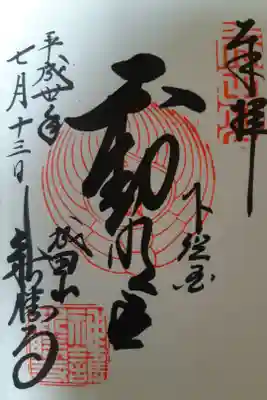 奉拝
下総国
不動明王
成田山
新勝寺
平成卅年
七月十三日